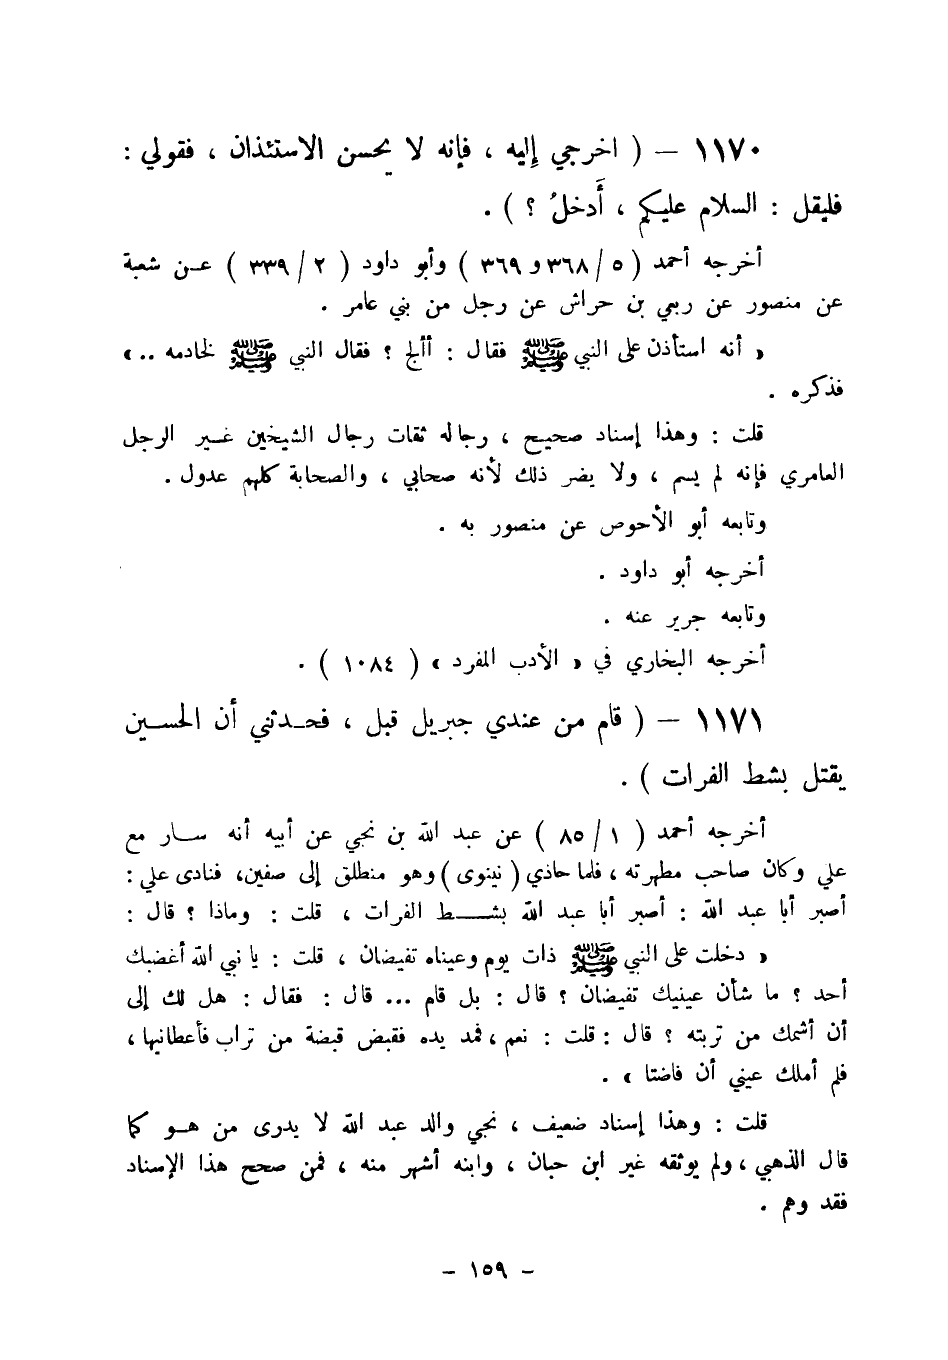 ١١٧٠ – ( اخرجي إليه ، فإنه لا يحسن الاستئذان ، فقولي :
فليقل : السلام عليكم ، أَدخلُ ؟ ) .
أخرجه أحمد ( ٥ / ٣٦٨ و ٣٦٩ ) وأبو داود ( ٢ / ٣٣٩ ) عن شعبة
عن منصور عن ربعي بن حراش عن رجل من بني عامر .
« أنه استأذن على النبي ﷺ فقال : أألج ؟ فقال النبي ﷺ لخادمه .. »
فذكره .
قلت : وهذا إسناد صحيح ، رجاله ثقات رجال الشيخين غير الرجل
العامري فإنه لم يسم ، ولا يضر ذلك لأنه صحابي ، والصحابة كلهم عدول .
وتابعه أبو الأحوص عن منصور به .
أخرجه أبو داود .
وتابعه جرير عنه .
أخرجه البخاري في « الأدب المفرد » ( ١٠٨٤ ) .
١١٧١ – ( قام من عندي جبريل قبل ، فحدثني أن الحسين
يقتل بشط الفرات ) .
أخرجه أحمد ( ١ / ٨٥ ) عن عبد الله بن نجي عن أبيه أنه سار مع
علي وكان صاحب مطهرته ، فلما حاذي ( نينوى ) وهو منطلق إلى صفين، فنادى علي :
أصبر أبا عبد الله : أصبر أبا عبد الله بشط الفرات ، قلت : وماذا ؟ قال :
« دخلت على النبي ﷺ ذات يوم وعيناه تفيضان ، قلت : يا نبي الله أغضبك
أحد ؟ ما شأن عينيك تفيضان ؟ قال : بل قام ... قال : فقال : هل لك إلى
أن أشمك من تربته ؟ قال : قلت : نعم ، فمد يده فقبض قبضة من تراب فأعطانيها ،
فلم أملك عيني أن فاضتا » .
قلت : وهذا إسناد ضعيف ، نجي والد عبد الله لا يدرى من هو كما
قال الذهبي ، ولم يوثقه غير ابن حبان ، وابنه أشهر منه ، فمن صحح هذا الإسناد
فقد وهم .
– ١٥٩ –